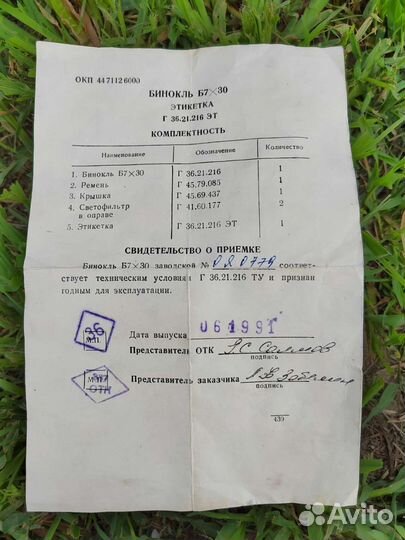 ОКП 44 7112 6000
БИНОКЛЬ Б7×30
ЭТИКЕТКА
Г 36.21.216 ЭТ
КОМПЛЕКТНОСТЬ
Наименование Обозначение Количество
1. Бинокль Б7×30 Г 36.21.216 1
2. Ремень Г 45.79.085 1
3. Крышка Г 45.69.437 1
4. Светофильтр Г 41.60.177 2
в оправе
5. Этикетка Г 36.21.216 ЭТ 1
СВИДЕТЕЛЬСТВО О ПРИЕМКЕ
Бинокль Б7×30 заводской № соответ-
ствует техническим условиям Г 36.21.216 ТУ и признан
годным для эксплуатации.
36
М.П.
Дата выпуска 06 1991
Представитель ОТК
подпись
ОТК
Представитель заказчика
подпись
439
Avito